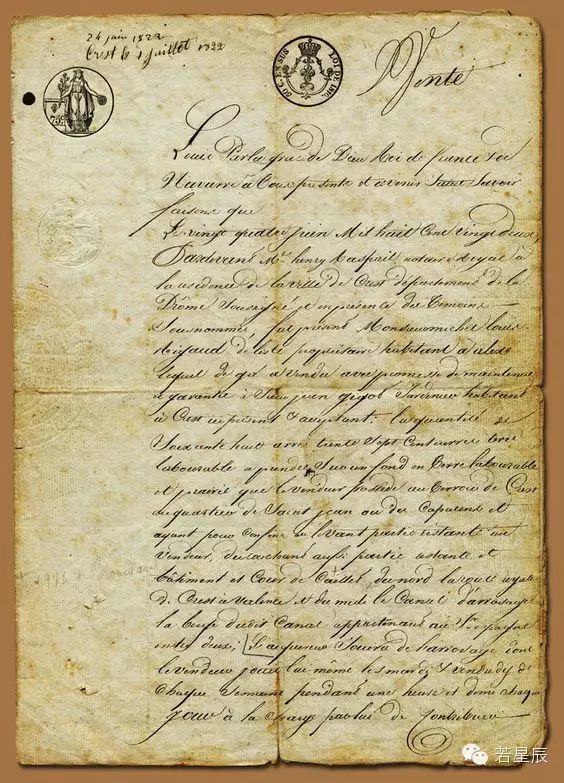 24 juin 1822
Crest le 4 juillet 1822
75c
50 C. EN SUS
LOI DE 1816
Vente
Louis Par la grace de Dieu Roi de france & de
Navarre à tous présents et à venir Salut Savoir
faisons que
Le vingt quatre juin Mil huit Cent Vingt deux
Pardevant Me henry Raspail notaire Royal à
la résidence de la ville de Crest département de la
Drôme Soussigné et en présence des témoins
Sousnommés, fut présent Monsieur michel louis
Rigaud de propriétaire habitant à alex
lequel de gré a vendu avec promesse de maintenue
& garantie à Sieur jean gigot habitant
à Crest ici présent & acceptant: la quantité de
Soixante huit ares trente Sept Centiares terre
labourable à prendre Sur un fond en terre labourable
et prairie que le vendeur possède au terroir de Crest
au quartier de Saint jean ou des Capucins et
ayant pour confins au levant partie restante au
Vendeur, du couchant aussi partie restante et
bâtiment et Cour de du nord la route royale
de Crest à Valence et du midi le Canal d'arrosage
la berge dudit Canal appartenant au Sr
entre deux;
le vendeur jouit lui même les mardi & vendredy de
Chaque Semaine pendant une heure et demi chaque
jour à la charge par lui de Contribuer
若星辰